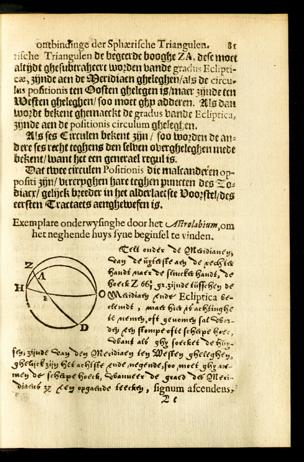 ontbindinge der Sphærische Triangulen. 81
rische Triangulen de begeerde booghe ZA, dese moet
altijdt ghesubtraheert worden vande gradus Eclipti-
cæ, zijnde aen de Meridiaen gheleghen/ als de circu-
lus positionis ten Oosten ghelegen is/ maer zijnde ten
Westen gheleghen/ soo moet ghy adderen. Als dan
wordt bekent ghemaeckt de gradus vande Ecliptica,
zijnde aen de positionis circulum gheleghen.
Als ses Circulen bekent zijn/ soo worden de an-
dere ses recht teghens den selven overgheleghen mede
bekent/ want het een generael regul is.
Dat twee circulen Positionis die malcanderen op-
positi zijn/ vereyschen hare teghen puncten des Zo-
diacx/ gelijck breeder in het alderlaetste Voorstel/ des
eersten Tractaets aenghewesen is.
Exemplare onderwysinghe door het Astrolabium, om
het neghende huys syne beginsel te vinden.
Telt onder de Meridiaen,
van de
handt naer de slincker handt, de
hoeck Z 66, gr. zijnde tusschen de
Meridiaen ende Ecliptica be-
Z
A
H
O
D
fen, zijnde van den Meridiaen ten Westen gheleghen,
ghelijck zijn het achtste ende negende, soo moet ghy ne-
men de scherpe hoeck, wanneer de graed des Meri-
diaens opgaende teecken, signum ascendens,